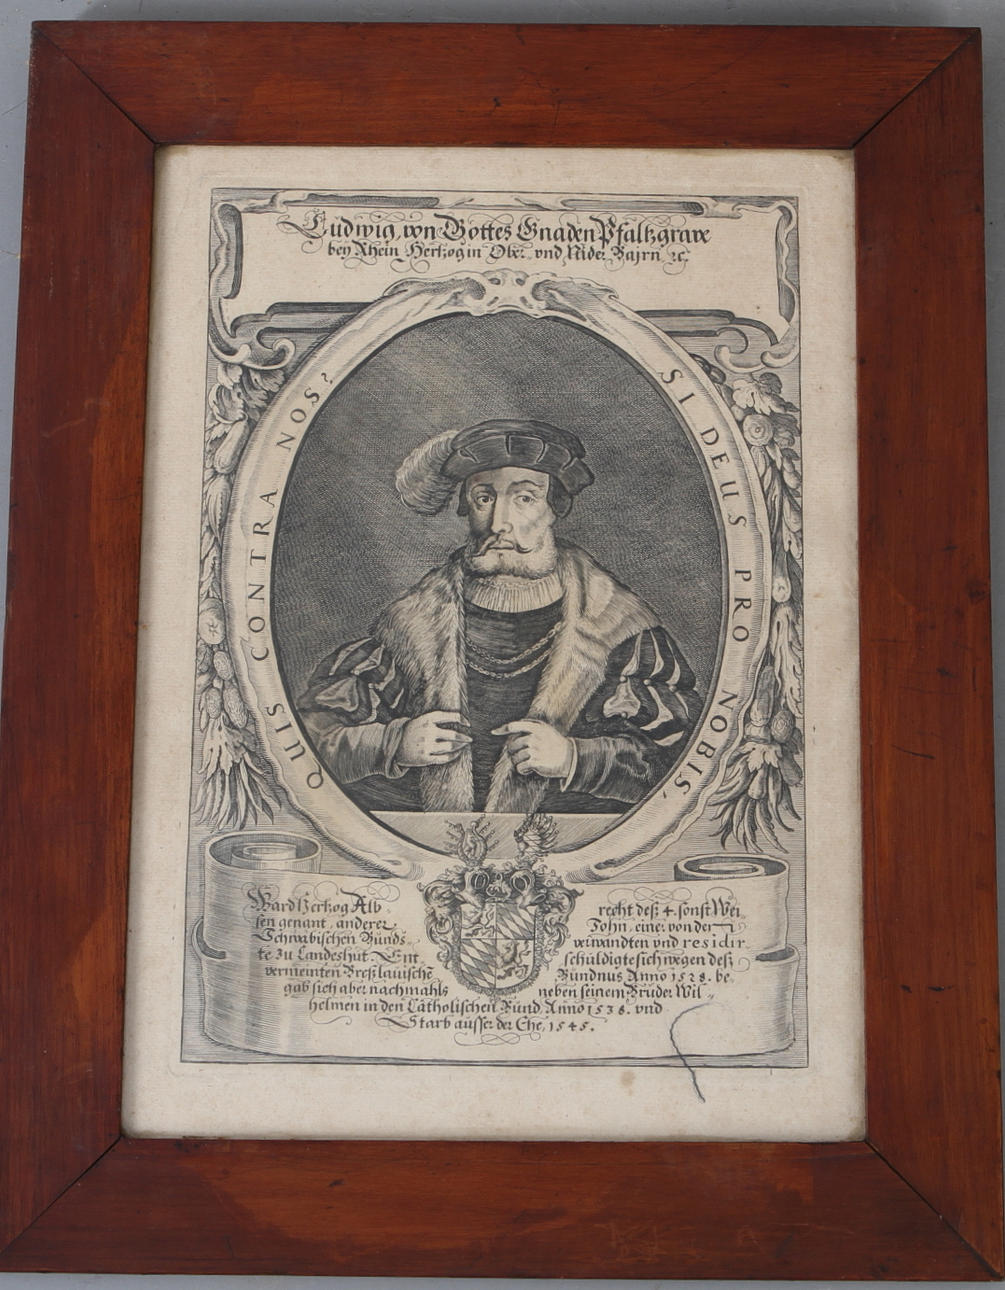 Ludwig, von Gottes Gnaden Pfaltzgrave
beÿ Rhein, Hertzog in Ober. vnd Nider Bajrn ꝛc.
SI DEUS PRO NOBIS,
QUIS CONTRA NOS?
Ward Hertzog Alb recht deß 4. sonst Wei
sen genant, anderer Sohn, einer von der
Schwäbischen Bunds verwandten vnd residir
te zu Landeshüt. Ent schüldigte sich wegen deß
vermeinten Breßlauischē Bündnus Anno 1528. be
gab sich aber nachmahls neben seinem Brüder Wil
helmen in den Catholischen Bünd Anno 1538. vnd
Starb aüsser der Ehe, 1545.